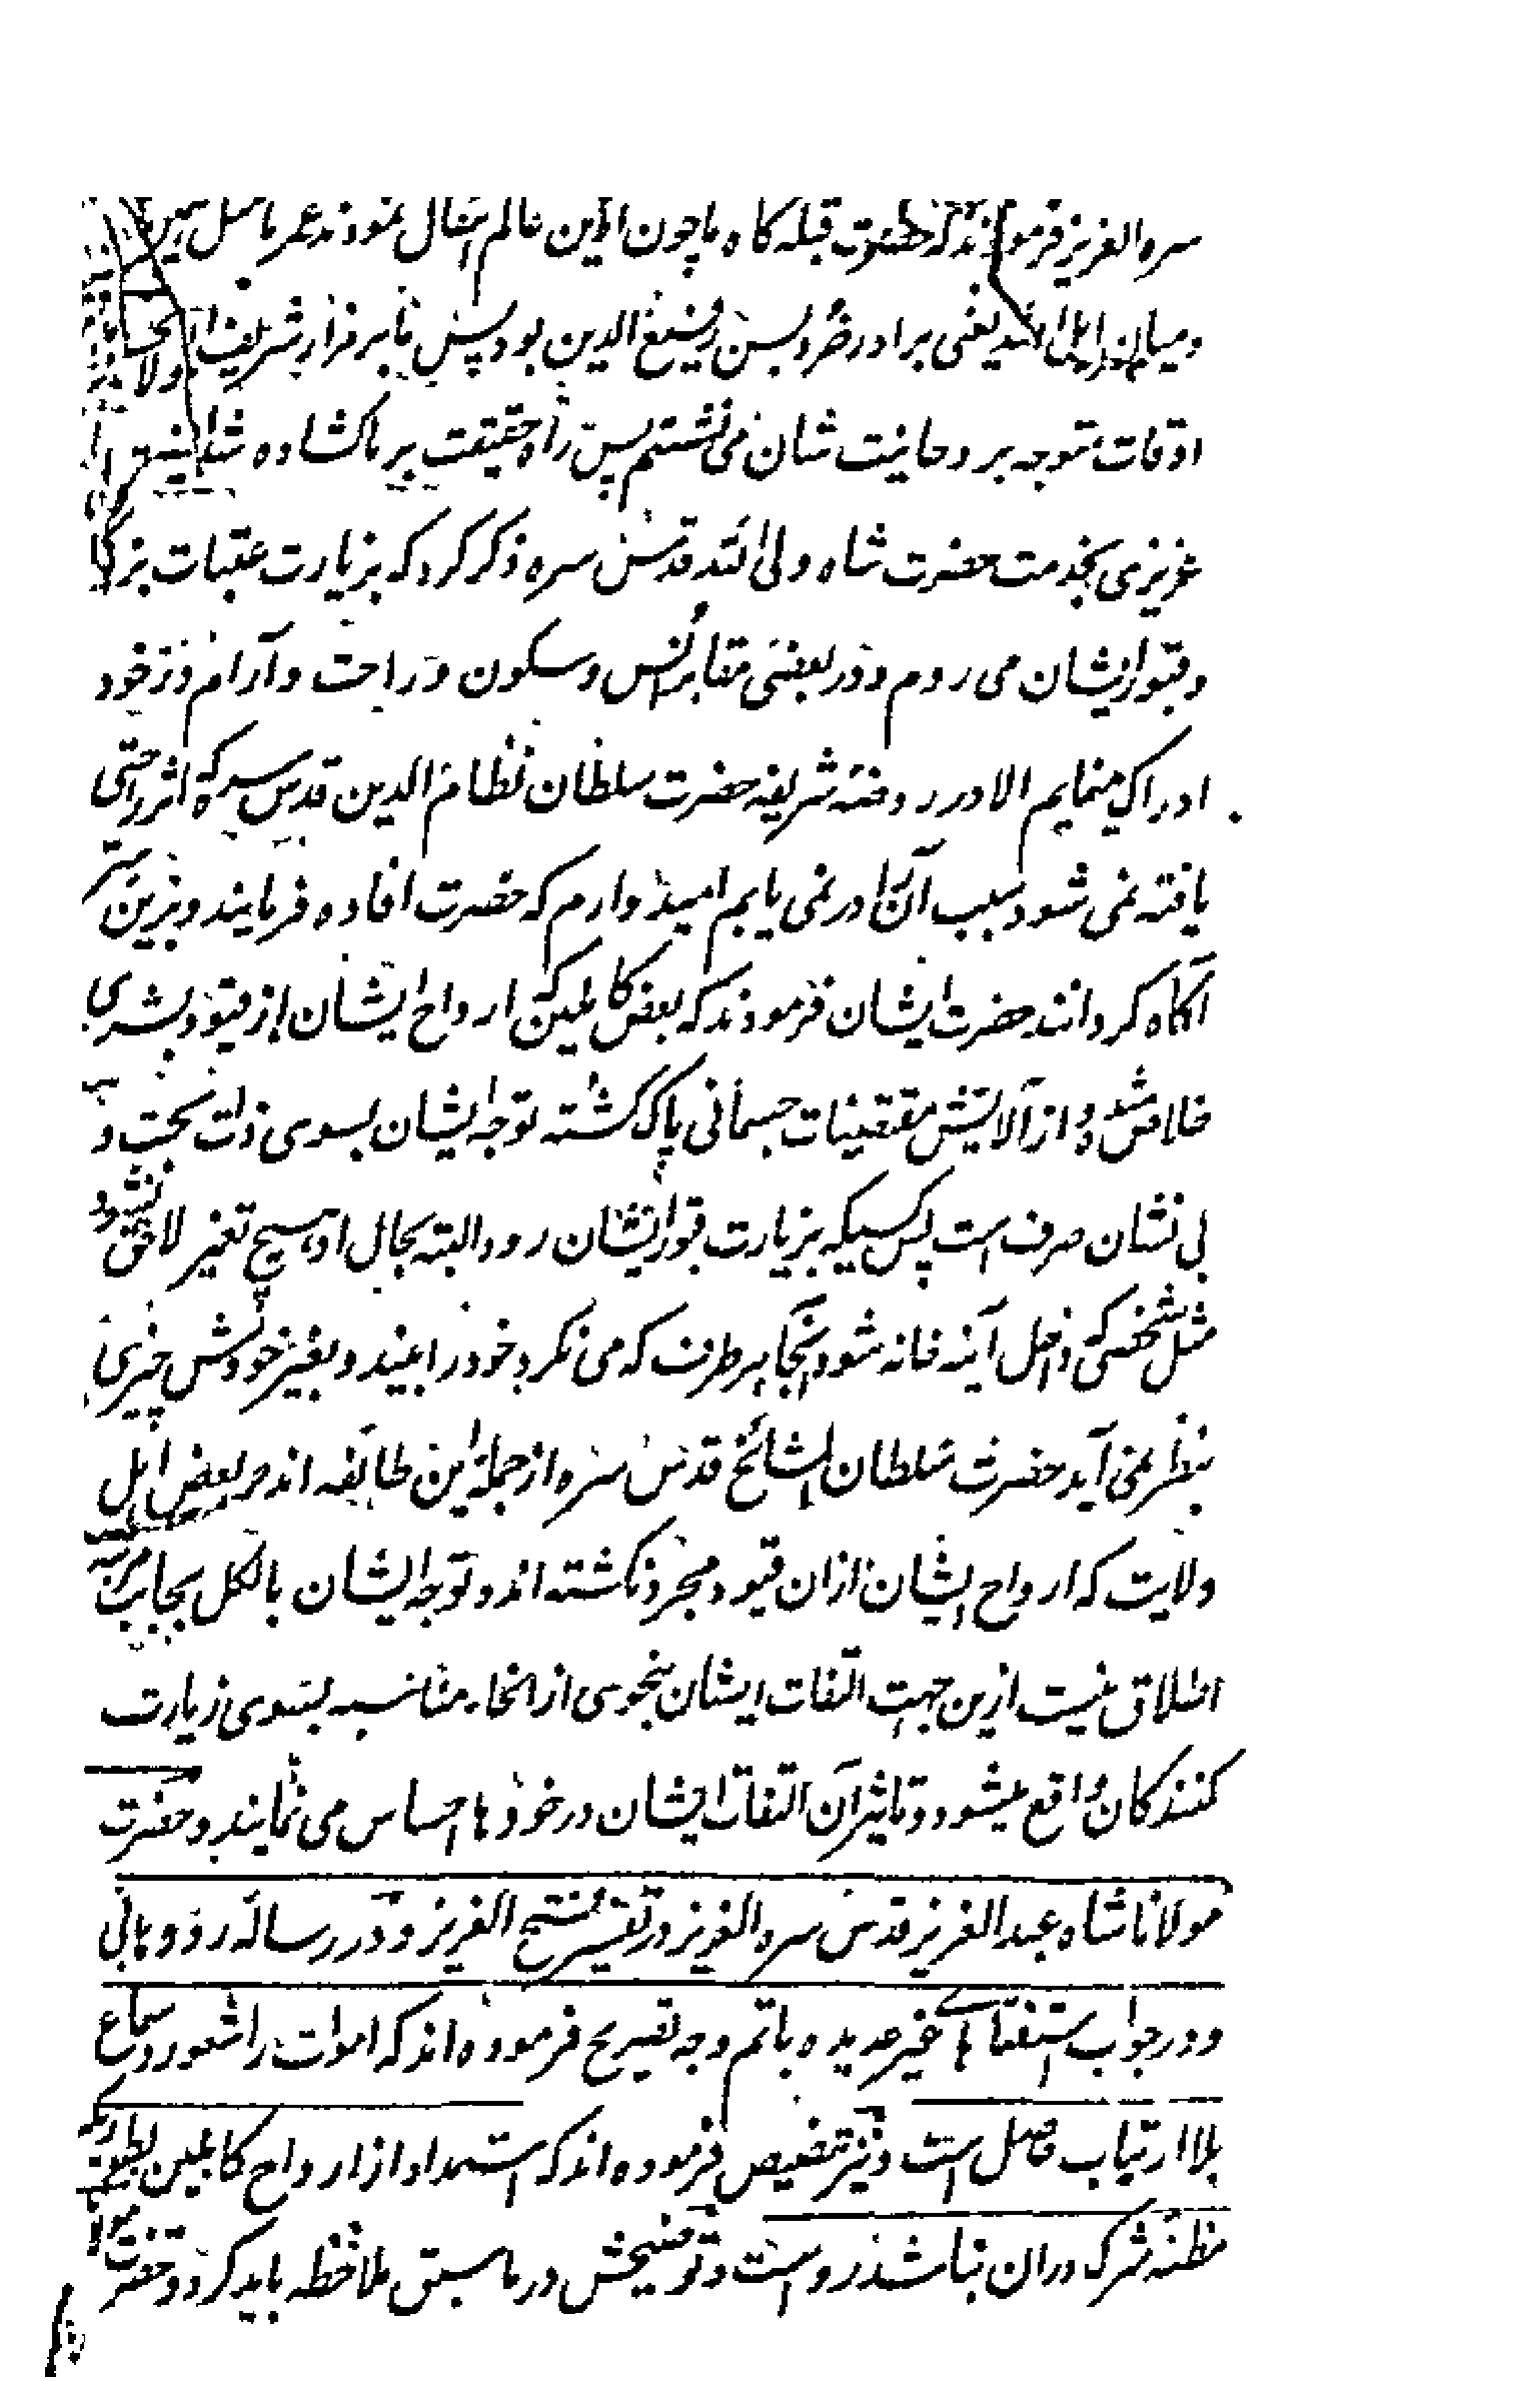 سره العزیز فرمودند که حضرت قبله کاه ما چون ازین عالم انتقال نمودند عمر ما
و میان اہل اللہ یعنی برادر خرد بسن رفیع الدین بود پس ما بر مزار شریف
اوقات متوجه بر وحانیت شان می نشستم پس راه حقیقت بر ما کشاده شد
عزیزی بخدمت حضرت شاه ولی الله قدس سره ذکر کرد که بزیارت عتبات
و قبور ایشان می روم و در بعضی مقابر انس و سکون و راحت و آرام در خود
ادراک مینمایم الا در روضه شریفه حضرت سلطان نظام الدین قدس سره که اثر راحتی
یافته نمی شود سبب آن را در نمی یابم امید وارم که حضرت افاده فرمایند و برین سر
آکاه کردانند حضرت ایشان فرمودند که بعض کاملین که ارواح ایشان از قیود بشری
خلاص شده و از آلایش مقتضیات جسمانی پاک کشته توجه ایشان بسوی ذات بحت و
بی نشان صرف است پس کسیکه بزیارت قبور ایشان رود البته بحال او هیچ تغیر لاحق نشود
مثل شخصی که داخل آینه خانه شود آنجا بهر طرف که می نکرد خود را بیند و بغیر خودش چیزی
بنظر نمی آید حضرت سلطان المشائخ قدس سره از جمله این طایفه اند و بعض اہل
ولایت که ارواح ایشان ازان قیود مجرد نکشته اند و توجه ایشان بالکل بجانب مرتبه
اطلاق نیست ازین جهت التفات ایشان بنحوی از انحاء مناسبه بسوی زیارت
کنندکان واقع میشود و تاثیر آن التفات ایشان در خود ها احساس می نمایند و حضرت
مولانا شاه عبد العزیز قدس سره العزیز در تفسیر فتح العزیز و در رساله رد و بابی
و در جواب استفتا ہاے غیر عدیده باتم وجه تصریح فرموده اند که اموات را شعور و سماع
بلا ارتیاب حاصل است و نیز تنصیص فرموده اند که استمداد از ارواح کاملین بطوریکه
مظنه شرک دران نباشد رواست و توضیحش در ما سبق ملاحظه باید کرد و حضرت